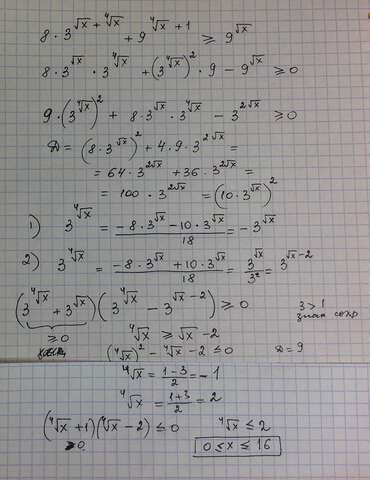 8 · 3^{√x + ⁴√x} + 9^{⁴√x + 1} ≥ 9^{√x}
8 · 3^{√x} · 3^{⁴√x} + (3^{⁴√x})² · 9 − 9^{√x} ≥ 0
9 · (3^{⁴√x})² + 8 · 3^{√x} · 3^{⁴√x} − 3^{2√x} ≥ 0
Д = (8 · 3^{√x})² + 4 · 9 · 3^{2√x} =
= 64 · 3^{2√x} + 36 · 3^{2√x} =
= 100 · 3^{2√x} = (10 · 3^{√x})²
1) 3^{⁴√x} = (−8 · 3^{√x} − 10 · 3^{√x})/18 = −3^{√x}
2) 3^{⁴√x} = (−8 · 3^{√x} + 10 · 3^{√x})/18 = 3^{√x}/3² = 3^{√x−2}
(3^{⁴√x} + 3^{√x})(3^{⁴√x} − 3^{√x−2}) ≥ 0
3 > 1
знак сохр
≥ 0
⁴√x ≥ √x − 2
(⁴√x)² − ⁴√x − 2 ≤ 0 Д = 9
⁴√x = (1−3)/2 = −1
⁴√x = (1+3)/2 = 2
(⁴√x + 1)(⁴√x − 2) ≤ 0 ⁴√x ≤ 2
0 ≤ x ≤ 16